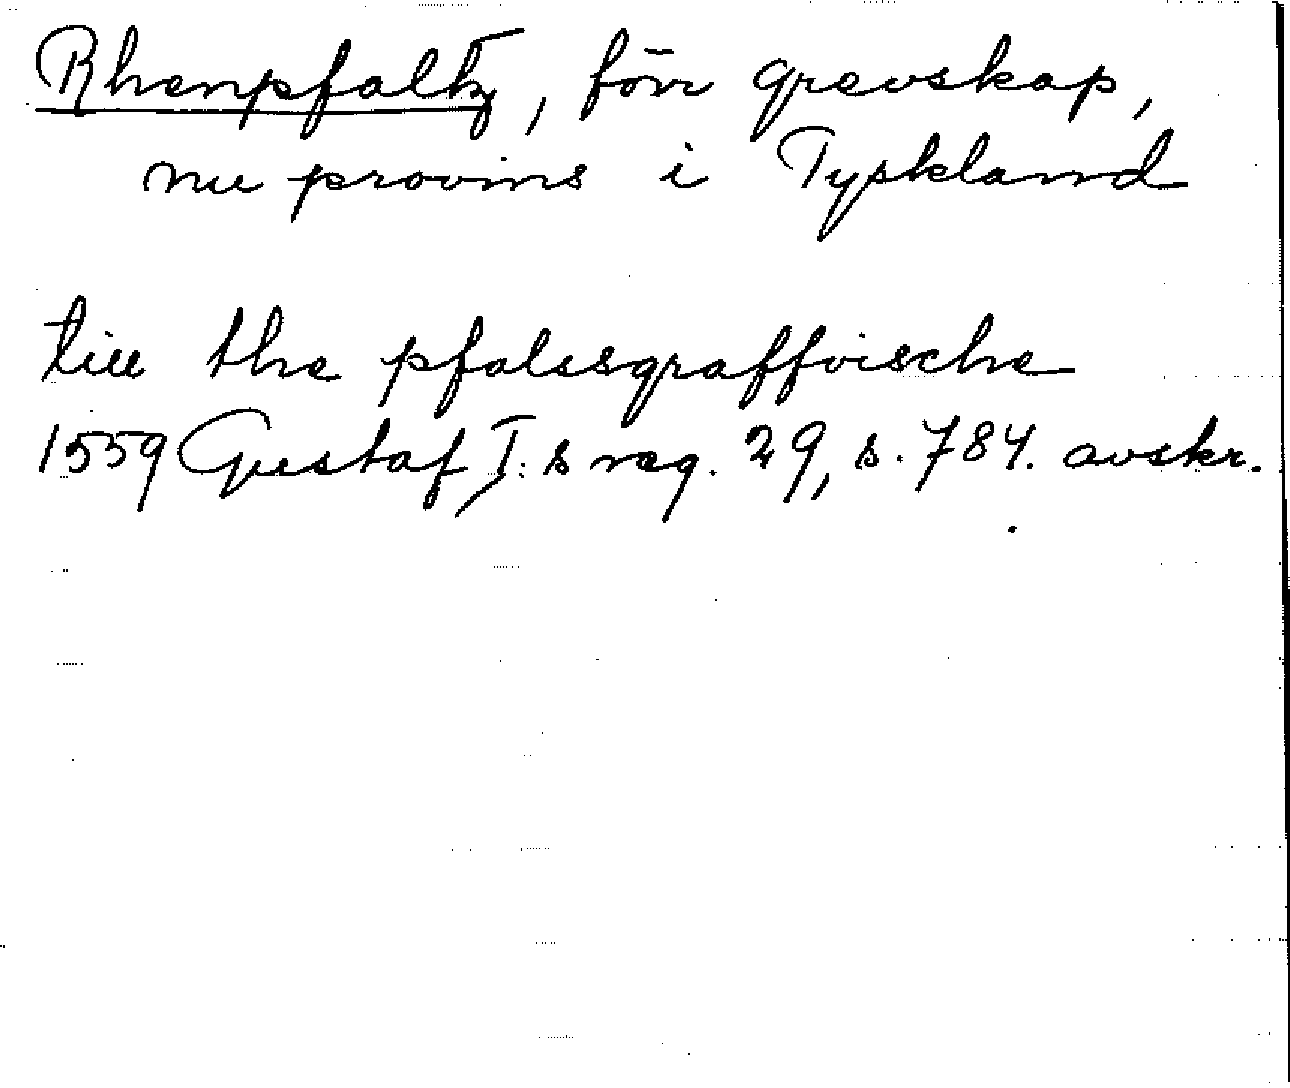 Rhenpfaltz, förr grevskap,
nu provins i Tyskland
till the pfalssgraffvische
1559 Gustaf I:s reg. 29, s. 784. avskr.